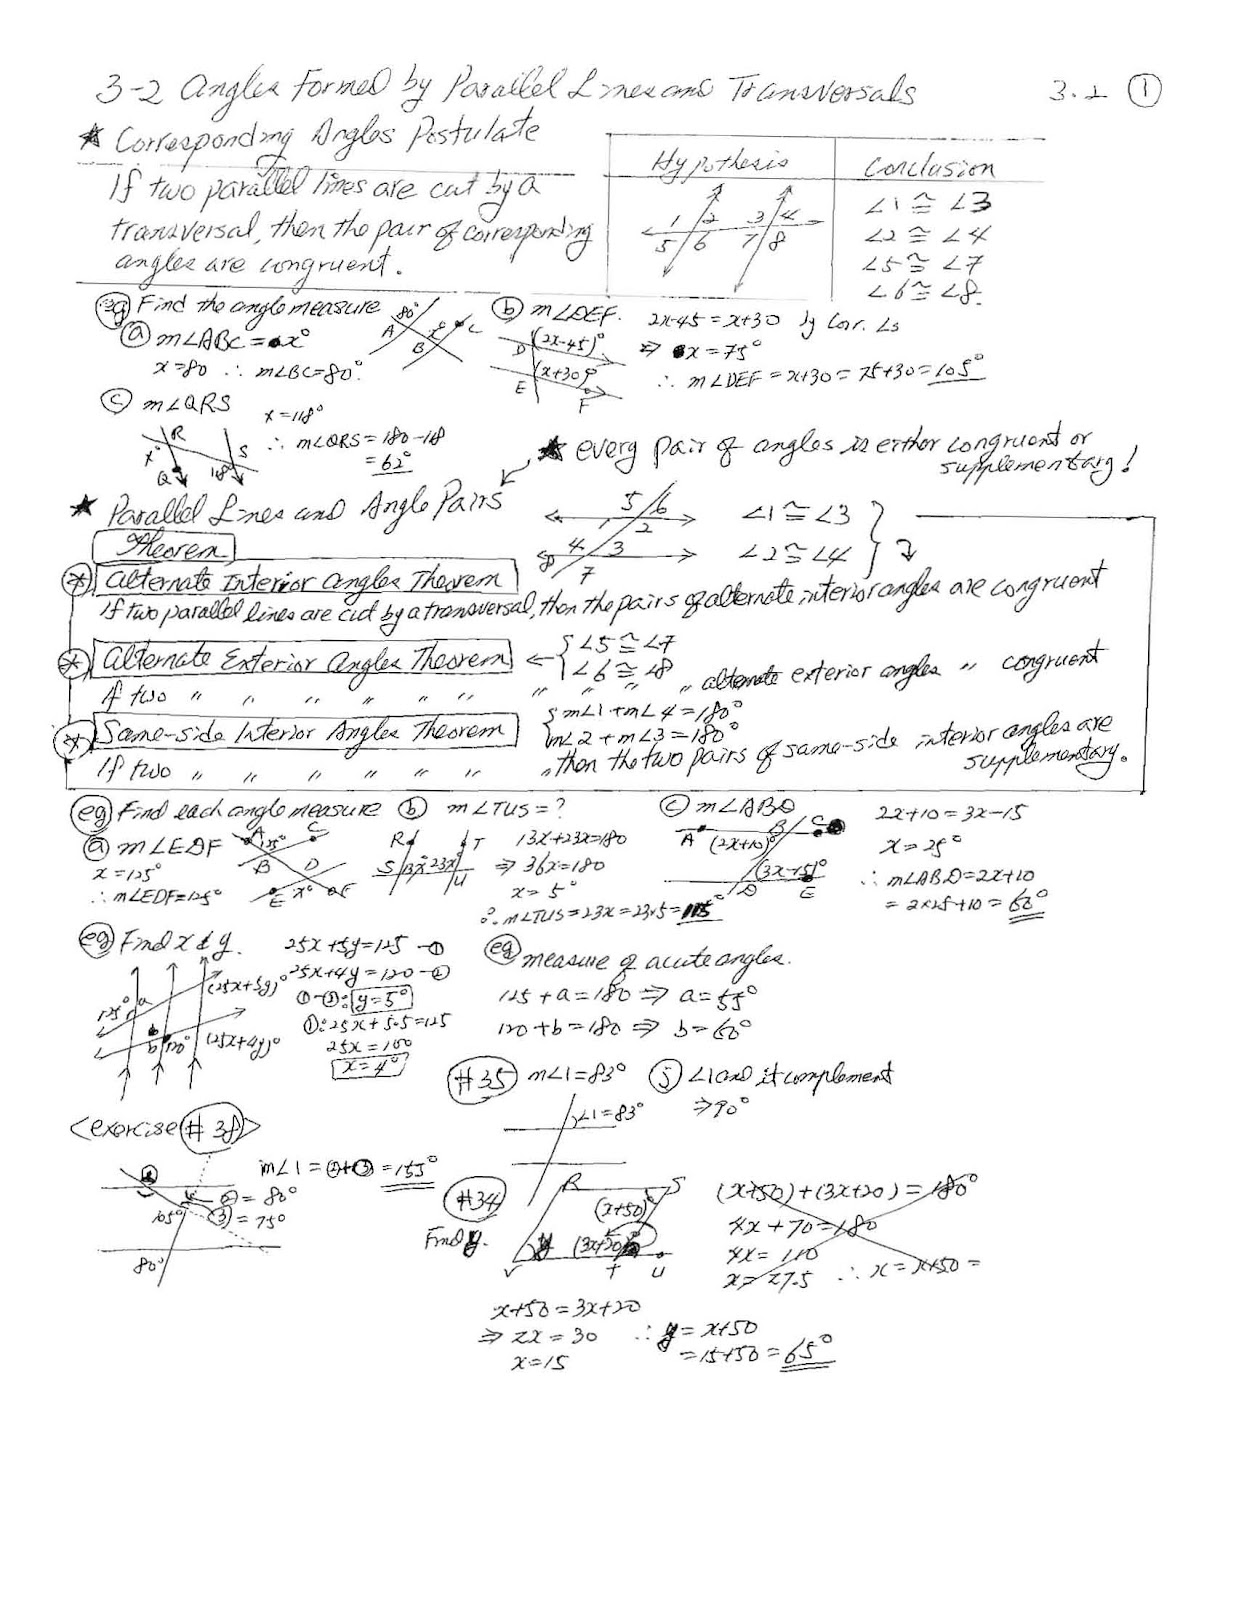 3-2 Angles Formed by Parallel Lines and Transversals 3.2 ①
★ Corresponding Angles Postulate
If two parallel lines are cut by a
transversal, then the pair of corresponding
angles are congruent.
Hypothesis Conclusion
1 2 3 4
5 6 7 8
∠1 ≅ ∠3
∠2 ≅ ∠4
∠5 ≅ ∠7
∠6 ≅ ∠8.
eg Find the angle measure
ⓐ m∠ABC = x°
x=80 ∴ m∠BC=80°.
80° A x° C B
ⓑ m∠DEF.
D (2x-45)°
(x+30)°
E F
2x-45 = x+30 by Cor. ∠s
⇒ x = 75°
∴ m∠DEF = x+30 = 75+30 = 105°
ⓒ m∠QRS
x = 118°
∴ m∠QRS = 180-118
= 62°
R x° S Q 118°
★ every pair of angles is either congruent or
supplementary!
★ Parallel Lines and Angle Pairs
5 6
1 2
4 3
8 7
∠1 ≅ ∠3
∠2 ≅ ∠4
Theorem
* Alternate Interior Angles Theorem
If two parallel lines are cut by a transversal, then the pairs of alternate interior angles are congruent
* Alternate Exterior Angles Theorem ← { ∠5 ≅ ∠7
∠6 ≅ ∠8
If two " " " " " " " " " " alternate exterior angles " congruent
* Same-side Interior Angles Theorem
{ m∠1 + m∠4 = 180°
m∠2 + m∠3 = 180°
If two " " " " " " , then the two pairs of same-side interior angles are
supplementary.
eg Find each angle measure
ⓐ m∠EDF
x = 125°
∴ m∠EDF = 125°
A C 125° B D E x° F
ⓑ m∠TUS = ?
R T S 13x° 23x° U
13x+23x=180
⇒ 36x=180
x = 5°
∴ m∠TUS = 23x = 23×5 = 115°
ⓒ m∠ABD
A B C
(2x+10)°
(3x-15)°
D E
2x+10 = 3x-15
x = 25°
∴ m∠ABD = 2x+10
= 2×25+10 = 60°
eg Find x & y.
125° a (25x+5y)°
b 120° (25x+4y)°
25x+5y=125 -①
25x+4y=120 -②
①-②: y=5°
①: 25x+5·5=125
25x = 100
x=4°
eg measure of acute angles.
125 + a = 180 ⇒ a = 55°
120 + b = 180 ⇒ b = 60°
#35 m∠1 = 83° ⓙ ∠1 and it complement
⇒ 90°
∠1 = 83°
<exercise #38>
m∠1 = ②+③ = 155°
② = 80°
③ = 75°
105°
80°
#34
Find y.
R S
(x+50)°
y (3x+20)°
V T U
(x+50)+(3x+20) = 180°
4x + 70 = 180
4x = 110
x = 27.5 ∴ x = x+50 =
x+50 = 3x+20
⇒ 2x = 30
x = 15
∴ y = x+50
= 15+50 = 65°